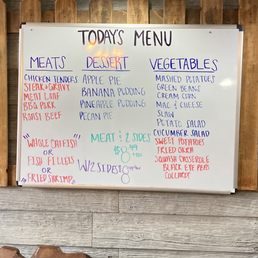 TODAY'S MENU
MEATS
CHICKEN TENDERS
STEAK & GRAVY
MEAT LOAF
BBQ PORK
ROAST BEEF
"WHOLE CATFISH"
OR
FISH FILLETS
OR
"FRIED SHRIMP"
DESSERT
APPLE PIE
BANANA PUDDING
PINEAPPLE PUDDING
PECAN PIE
MEAT & 2 SIDES
W/2 SIDES
VEGETABLES
MASHED POTATOES
GREEN BEANS
CREAM CORN
MAC & CHEESE
SLAW
POTATO SALAD
CUCUMBER SALAD
SWEET POTATOES
FRIED OKRA
SQUASH CASSEROLE
BLACK EYE PEAS
COLLARDS